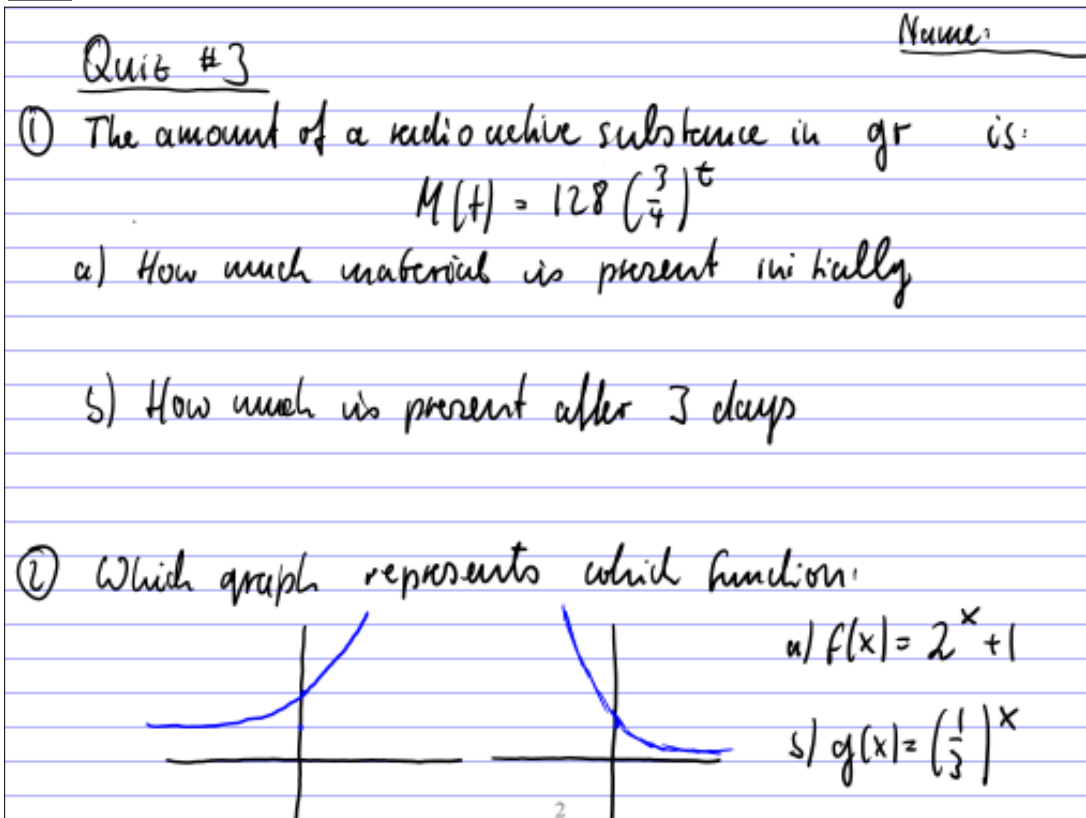 Name:
Quiz #3
① The amount of a radioactive substance in gr is:
M(t) = 128 (3/4)^t
a) How much material is present initially
b) How much is present after 3 days
② Which graph represents which function:
a) f(x) = 2^x + 1
b) g(x) = (1/3)^x
2